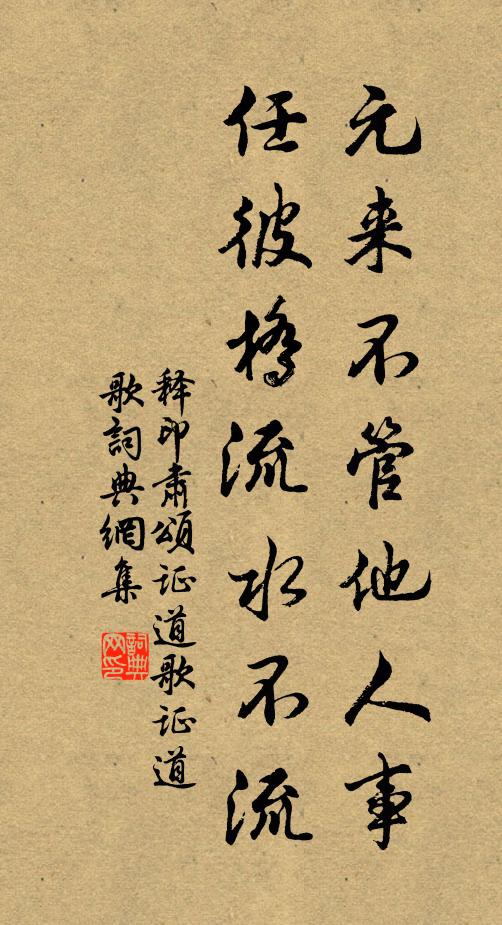 元来不管他人事
任彼桥流水不流
释印肃颂证道歌证道
歌詞典網集
詞典网印